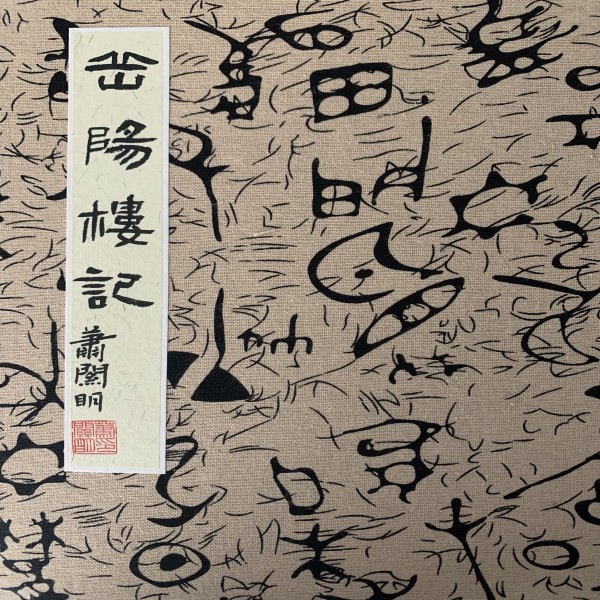 岳陽樓記
蕭関明